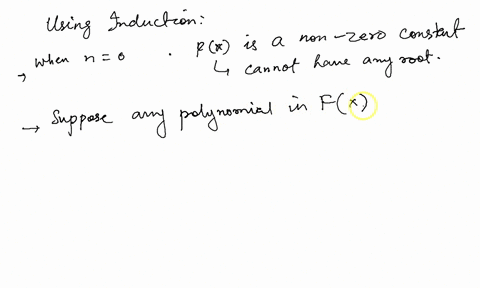 Using Induction:
→ when n=0 . F(x) is a non-zero constant
↳ cannot have any root.
→ Suppose any polynomial in F(x)